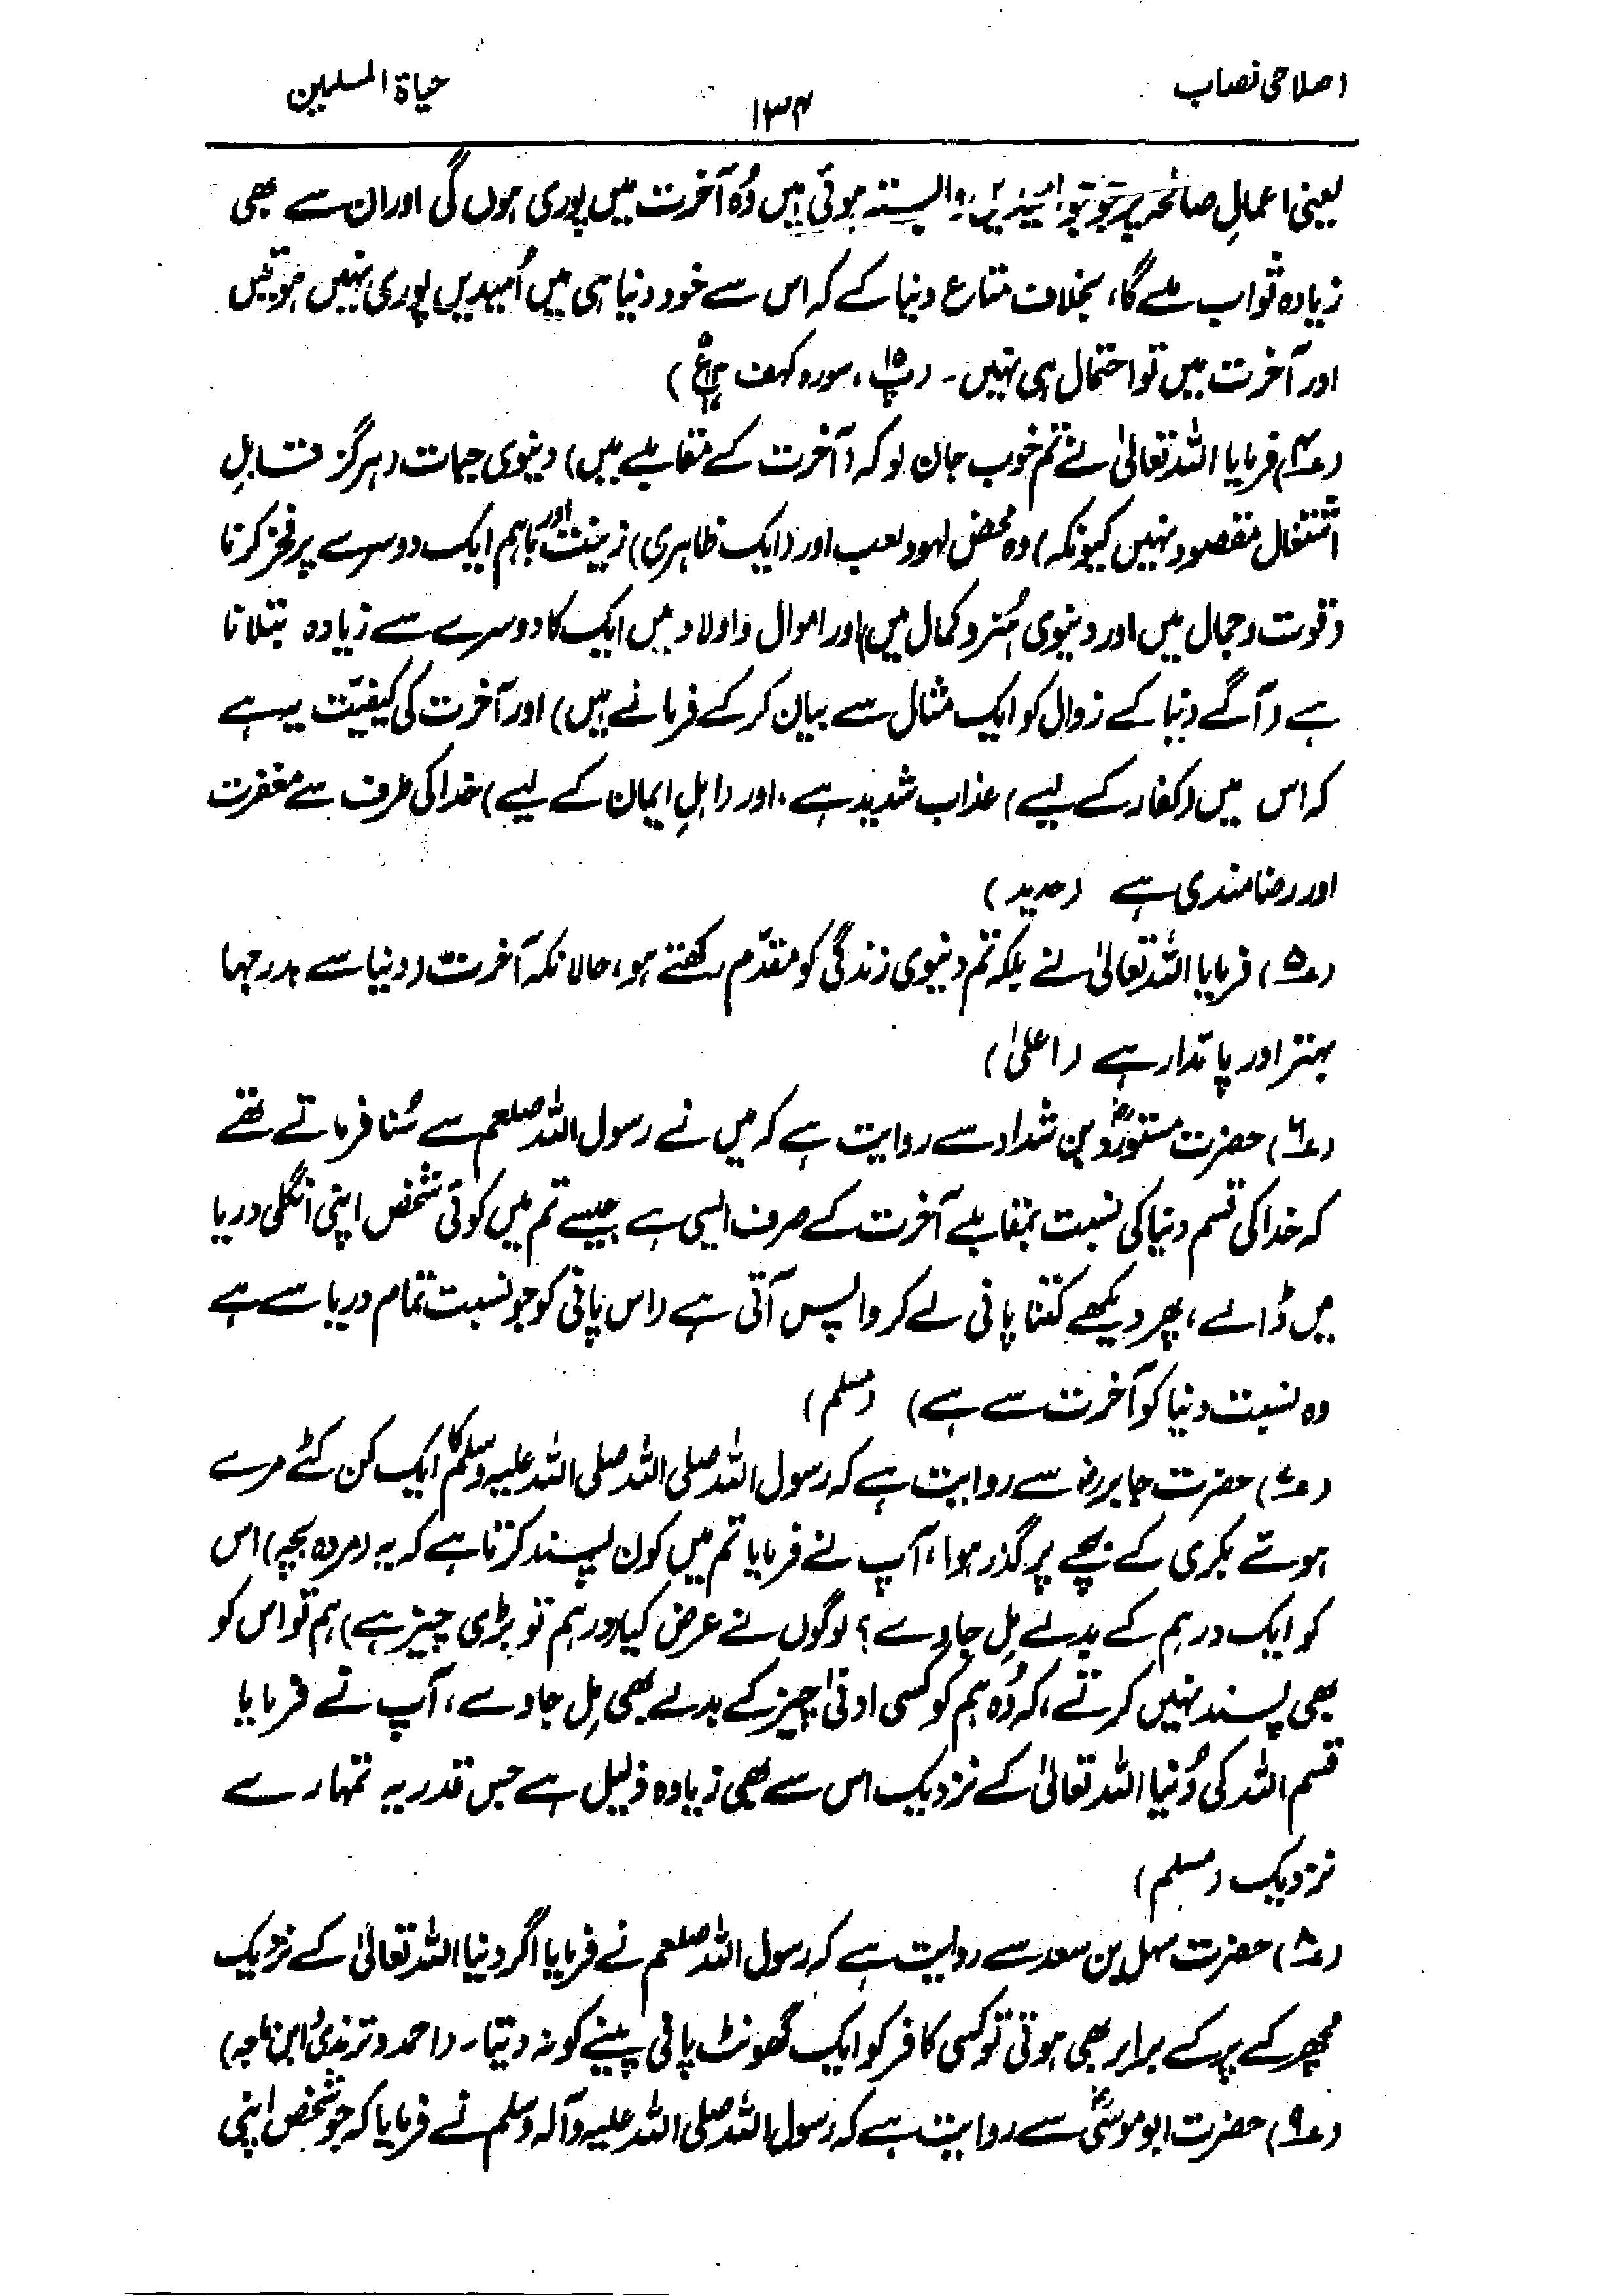 اصلاحی نصاب
۱۳۴
حیاة المسلمین
یعنی اعمالِ صالحہ پر جو جو امیدیں وابستہ ہوئی ہیں وُہ آخرت میں پوری ہوں گی اور ان سے بھی
زیادہ ثواب ملے گا، بخلاف متاع دنیا کے کہ اس سے خود دنیا ہی میں اُمیدیں پوری نہیں ہوتیں
اور آخرت میں تو احتمال ہی نہیں۔ (پ۱۵، سورہ کہف)
(۴) فرمایا اللہ تعالیٰ نے تم خوب جان لو کہ (آخرت کے مقابلے میں) دنیوی حیات (ہرگز قابلِ
اشتغال مقصود نہیں کیونکہ) وہ محض لہو و لعب اور (ایک ظاہری) زینت اور باہم ایک دوسرے پر فخر کرنا
(قوت و جمال میں اور دنیوی ہُنر و کمال میں) اور اموال و اولاد میں ایک کا دوسرے سے زیادہ بتلانا
ہے (آگے دنیا کے زوال کو ایک مثال سے بیان کر کے فرماتے ہیں) اور آخرت کی کیفیّت یہ ہے
کہ اس میں (کفار کے لیے) عذاب شدید ہے، اور (اہلِ ایمان کے لیے) خدا کی طرف سے مغفرت
اور رضامندی ہے (حدید)
(۵) فرمایا اللہ تعالیٰ نے بلکہ تم دنیوی زندگی کو مقدّم رکھتے ہو، حالانکہ آخرت (دنیا سے بدرجہا
بہتر اور پائدار ہے (اعلیٰ)
(۶) حضرت مستوردؓ بن شداد سے روایت ہے کہ میں نے رسول اللہ صلعم سے سُنا فرماتے تھے
کہ خدا کی قسم دنیا کی نسبت بمقابلے آخرت کے صرف ایسی ہے جیسے تم میں کوئی شخص اپنی انگلی دریا
میں ڈالے، پھر دیکھے کتنا پانی لے کر واپس آتی ہے (اس پانی کو جو نسبت تمام دریا سے ہے
وہ نسبت دنیا کو آخرت سے ہے) (مسلم)
(۷) حضرت جابر رضؓ سے روایت ہے کہ رسول اللہ صلی اللہ صلی اللہ علیہ وسلم کا ایک کن کٹے مرے
ہوئے بکری کے بچے پر گذر ہوا، آپ نے فرمایا تم میں کون پسند کرتا ہے کہ یہ (مردہ بچہ) اس
کو ایک درہم کے بدلے مِل جاوے؟ لوگوں نے عرض کیا (درہم تو بڑی چیز ہے) ہم تو اس کو
بھی پسند نہیں کرتے، کہ وُہ ہم کو کسی ادنیٰ چیز کے بدلے بھی مِل جاوے، آپ نے فرمایا
قسم اللہ کی دُنیا اللہ تعالیٰ کے نزدیک اس سے بھی زیادہ ذلیل ہے جس قدر یہ تمہارے
نزدیک (مسلم)
(۸) حضرت سہل بن سعد سے روایت ہے کہ رسول اللہ صلعم نے فرمایا اگر دنیا اللہ تعالیٰ کے نزدیک
مچھر کے پر کے برابر بھی ہوتی تو کسی کافر کو ایک گھونٹ پانی پینے کو نہ دیتا۔ (احمد و ترمذی و ابن ماجہ)
(۹) حضرت ابو موسیٰؓ سے روایت ہے کہ رسول اللہ صلی اللہ علیہ وآلہ وسلم نے فرمایا کہ جو شخص اپنی